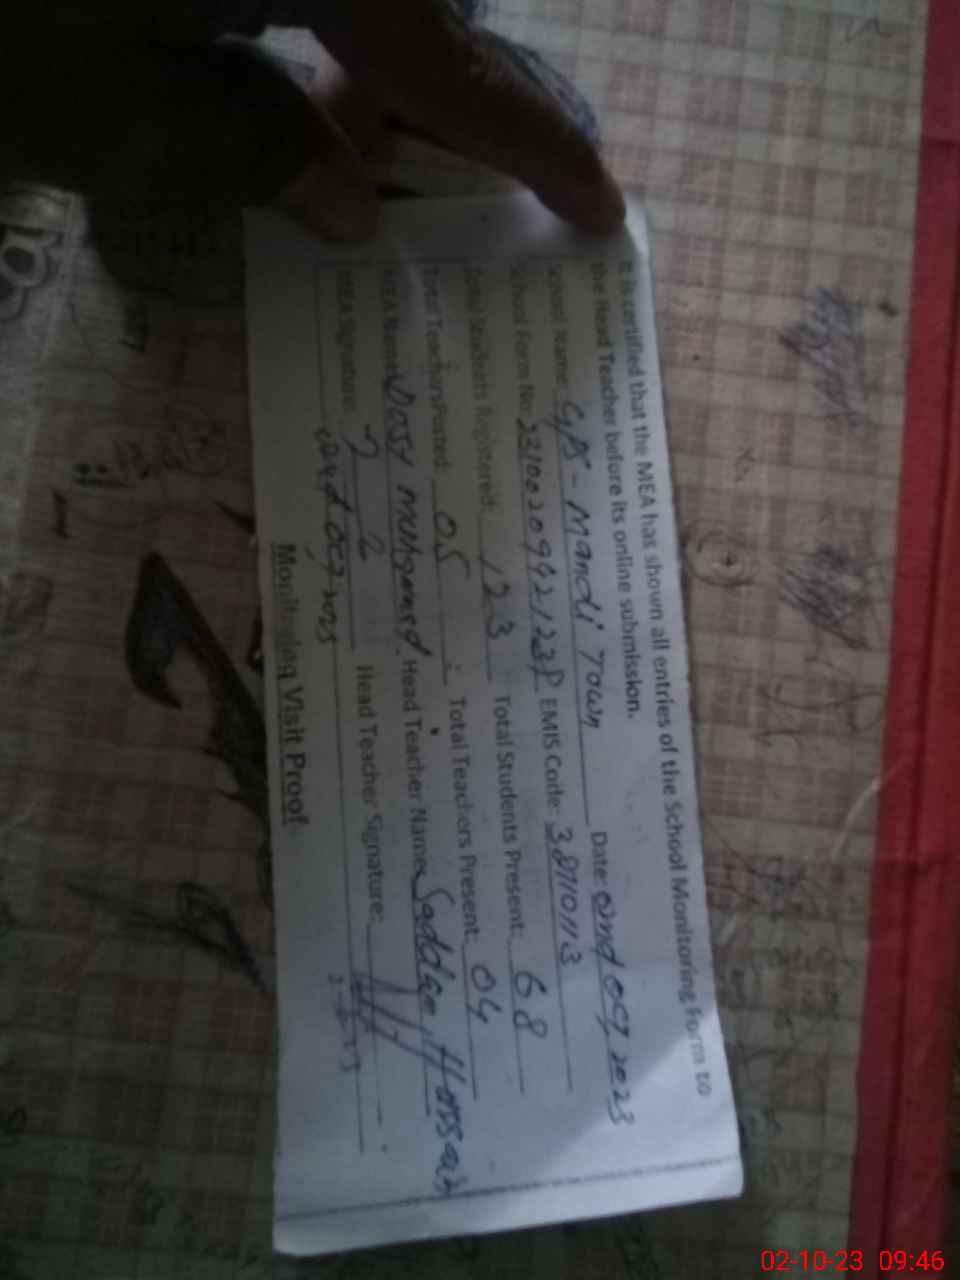 It is certified that the MEA has shown all entries of the School Monitoring Form to
the Head Teacher before its online submission.
School Name: GPS - Mandi Town Date: 02nd Oct 2023
School Form No: 2310020942123P EMIS Code: 38110113
Total Students Registered: 123 Total Students Present: 68
Total Teachers Posted: 05 Total Teachers Present: 04
MEA Name: Dost Muhammad Head Teacher Name: Saddam Hussain
MEA Signature: Head Teacher Signature:
02nd Oct, 2023
Monitoring Visit Proof
02-10-23 09:46